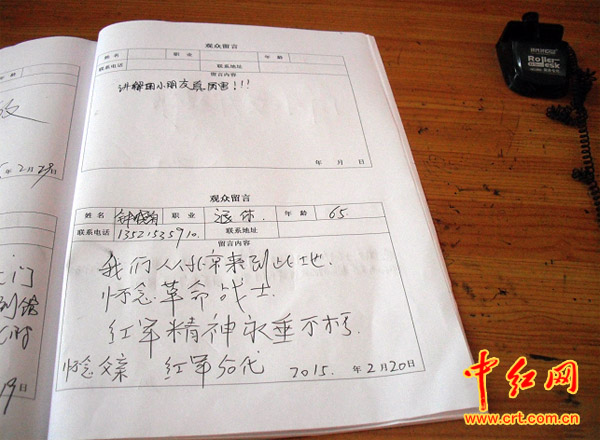 观众留言
姓名 职业 年龄
联系电话 联系地址
留言内容
讲解园小朋友最厉害!!!
年 月 日
观众留言
姓名 职业 退休. 年龄 65.
联系电话 13521535910. 联系地址
留言内容
我们从北京来到此地.
怀念革命战士.
红军精神永垂不朽.
怀念父亲 红军后代
2015. 年 2 月 20 日
年 2 月 日
19 日
Roller
Desk
中红网
www.crt.com.cn